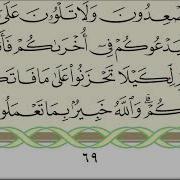 صْعِدُونَ وَلَا تَلْوُۥنَ عَلَىٰ
يَدْعُوكُمْ فِىٓ أُخْرَىٰكُمْ فَأَ
لِّكَيْلَا تَحْزَنُوا۟ عَلَىٰ مَا فَاتَكُ
كُمْ ۗ وَٱللَّهُ خَبِيرٌۢ بِمَا تَعْمَلُو
٦٩